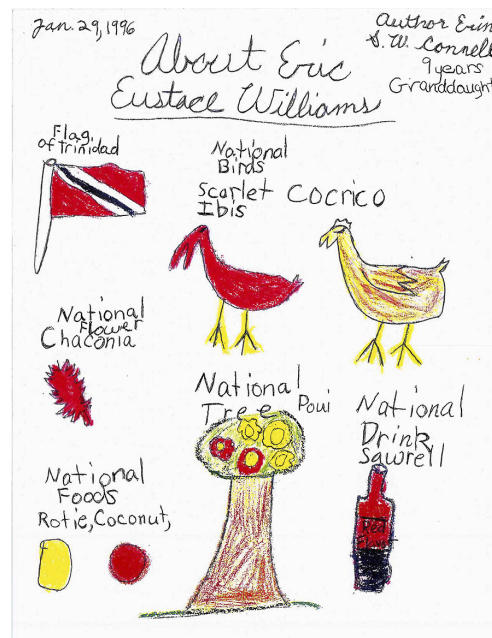 Jan. 29, 1996
Author Erin
S. W. Connell
9 years
Granddaught
About Eric
Eustace Williams
Flag
of Trinidad
National
Birds
Scarlet
Ibis
Cocrico
National
Flower
Chaconia
National
Tree Poui
National
Drink
Sawrell
National
Foods
Rotie, Coconut,
Red